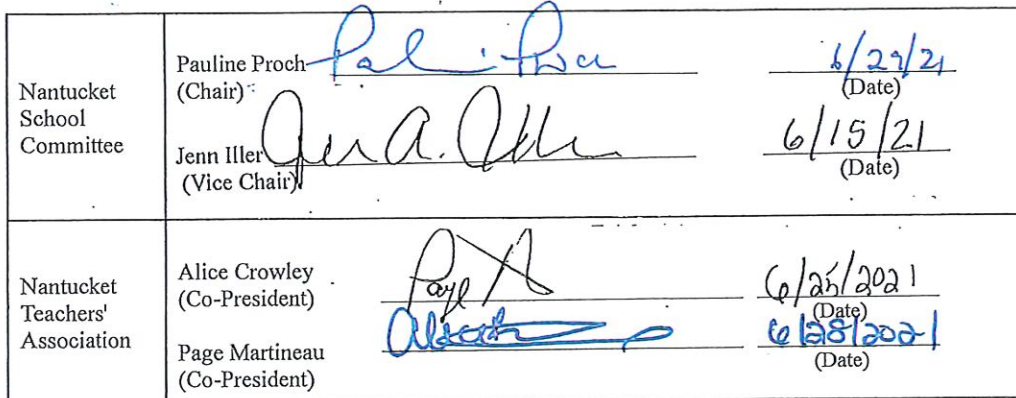 Nantucket
School
Committee
Pauline Proch
(Chair)
6/29/21
(Date)
Jenn Iller
(Vice Chair)
6/15/21
(Date)
Nantucket
Teachers'
Association
Alice Crowley
(Co-President)
Page
6/25/2021
(Date)
Page Martineau
(Co-President)
6/28/2021
(Date)